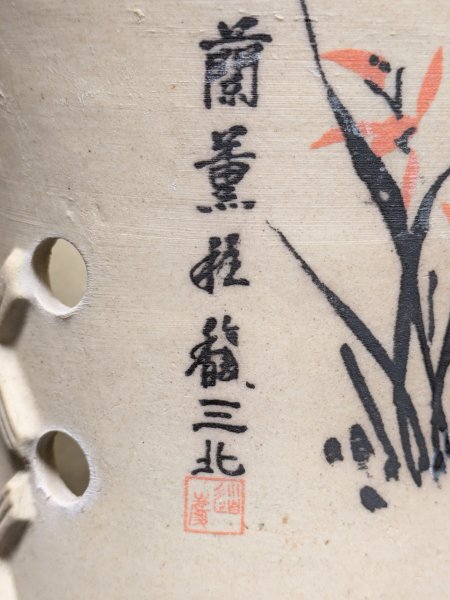 蘭薰桂馥三北